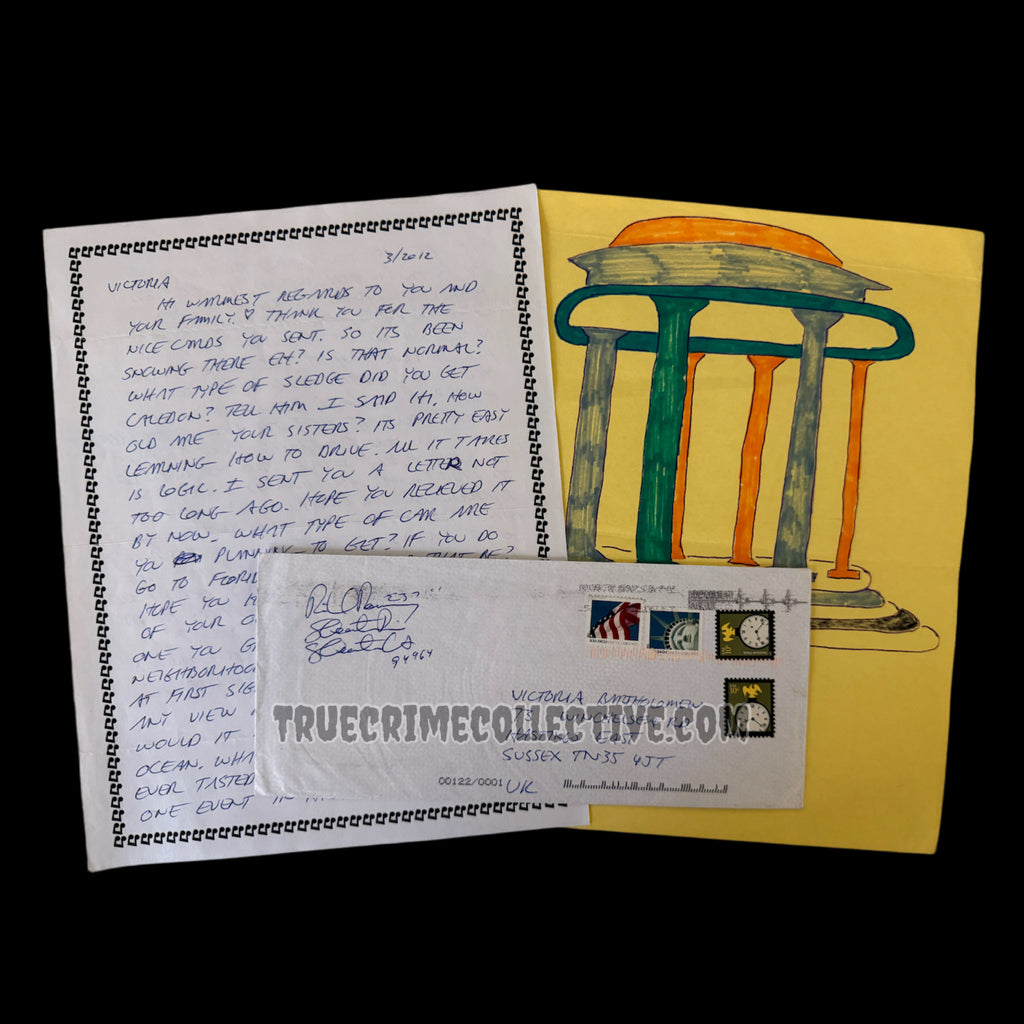 3/2012
VICTORIA
HI WARMEST REGARDS TO YOU AND
YOUR FAMILY. ♡ THANK YOU FOR THE
NICE CARDS YOU SENT. SO ITS BEEN
SNOWING THERE EH? IS THAT NORMAL?
WHAT TYPE OF SLEDGE DID YOU GET
CALEDON? TELL HIM I SAID HI. HOW
OLD ARE YOUR SISTERS? ITS PRETTY EASY
LEARNING HOW TO DRIVE. ALL IT TAKES
IS LOGIC. I SENT YOU A LETTER NOT
TOO LONG AGO. HOPE YOU RECIEVED IT
BY NOW. WHAT TYPE OF CAR ARE
YOU PLANNING TO GET? IF YOU DO
GO TO THAT BE?
HOPE YOU
OF YOUR
ONE YOU
AT FIRST
ANY VIEW
WOULD IT
OCEAN.
EVER TASTED
ONE EVENT
94964
VICTORIA
SUSSEX TN35 4JT
UK
00122/0001
TRUECRIMECOLLECTIVE.COM